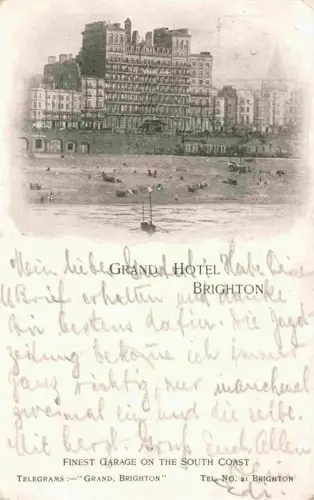 GRAND HOTEL
BRIGHTON
Mein lieber Habe Deinen
Brief erhalten und danke
Dir bestens dafür. Die Jagd-
zeitung bekome ich immer
ganz richtig, nur manchmal
zweimal ein und dieselbe.
Mit herzl. Gruß Euch Allen
FINEST GARAGE ON THE SOUTH COAST
TELEGRAMS:—"GRAND, BRIGHTON" TEL. NO. 21 BRIGHTON